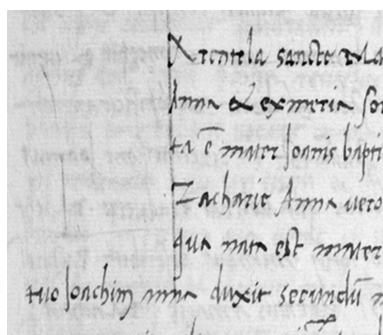 Parentela sancte Ma
Anna & exmeria sor
ta ē mater Joanis bapti
Zacharie Anna vero
qua nata est mater
tuo Joachim anna duxit secundū